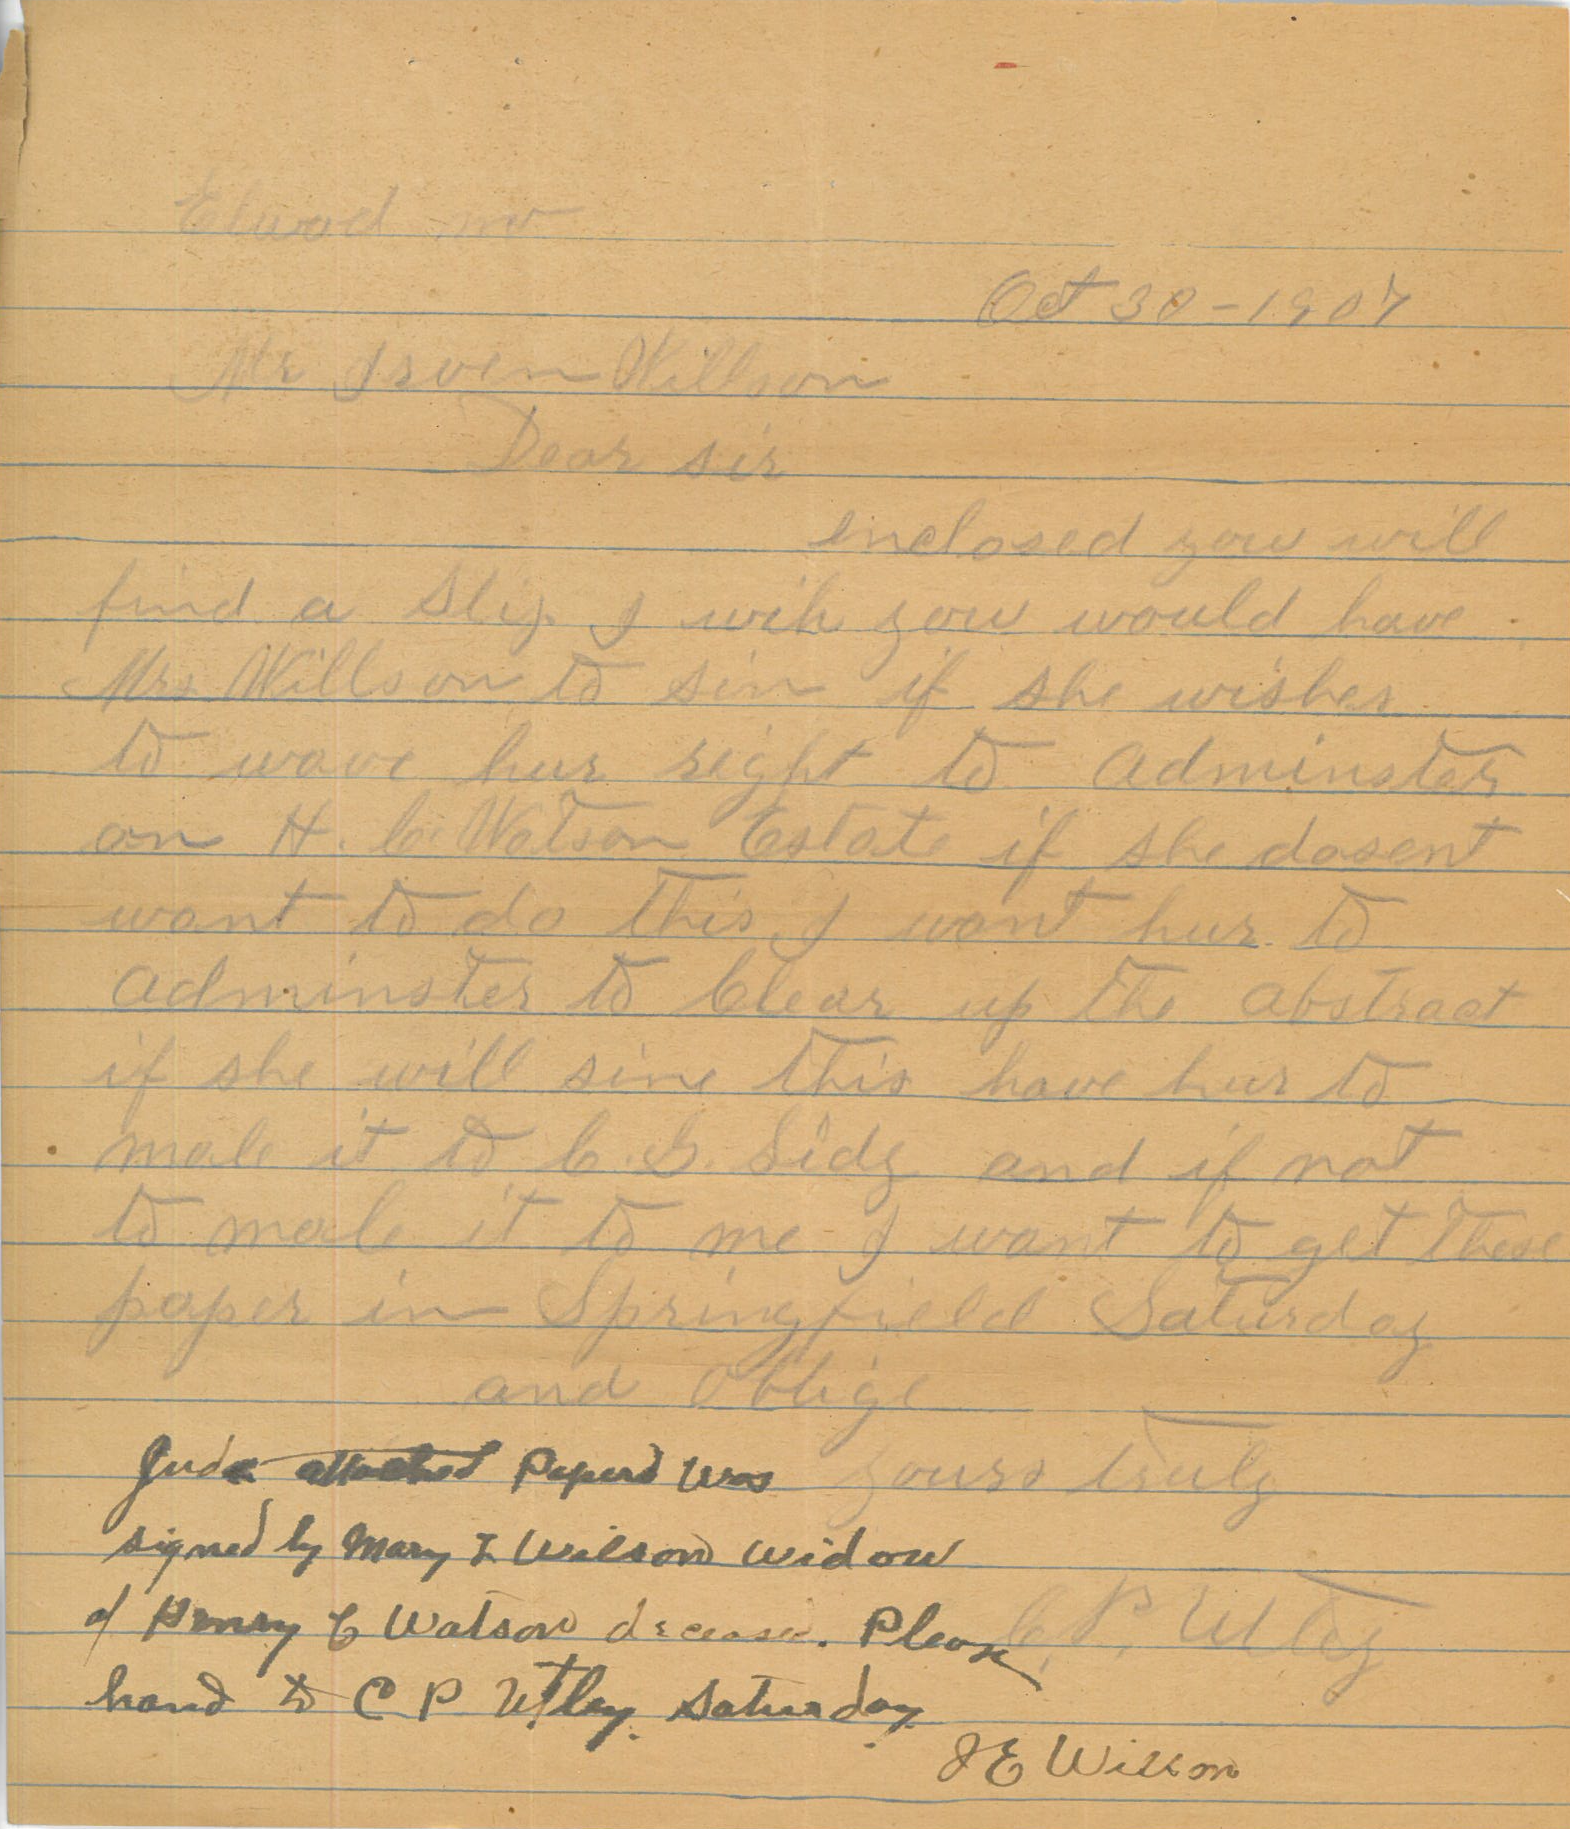 Elwood mo
Oct 30-1907
Mr Irven Willson
Dear sir
enclosed you will
find a Slip I wih you would have
Mrs Willson to sin if she wishes
to wave hur right to Adminster
on H. C. Watson Estate if she dosent
want to do this I want hur to
Adminster to Clear up the abstract
if she will sine this have hur to
male it to C. G. Sidy and if not
to male it to me I want to get these
paper in Springfield Saturday
and oblige
yours truly
C. P. Utley
Judge attached Papers was
signed by Mary I Wilson widow
of Henry C Watson decease. Please
hand to C P Utley Saturday
J E Wilson